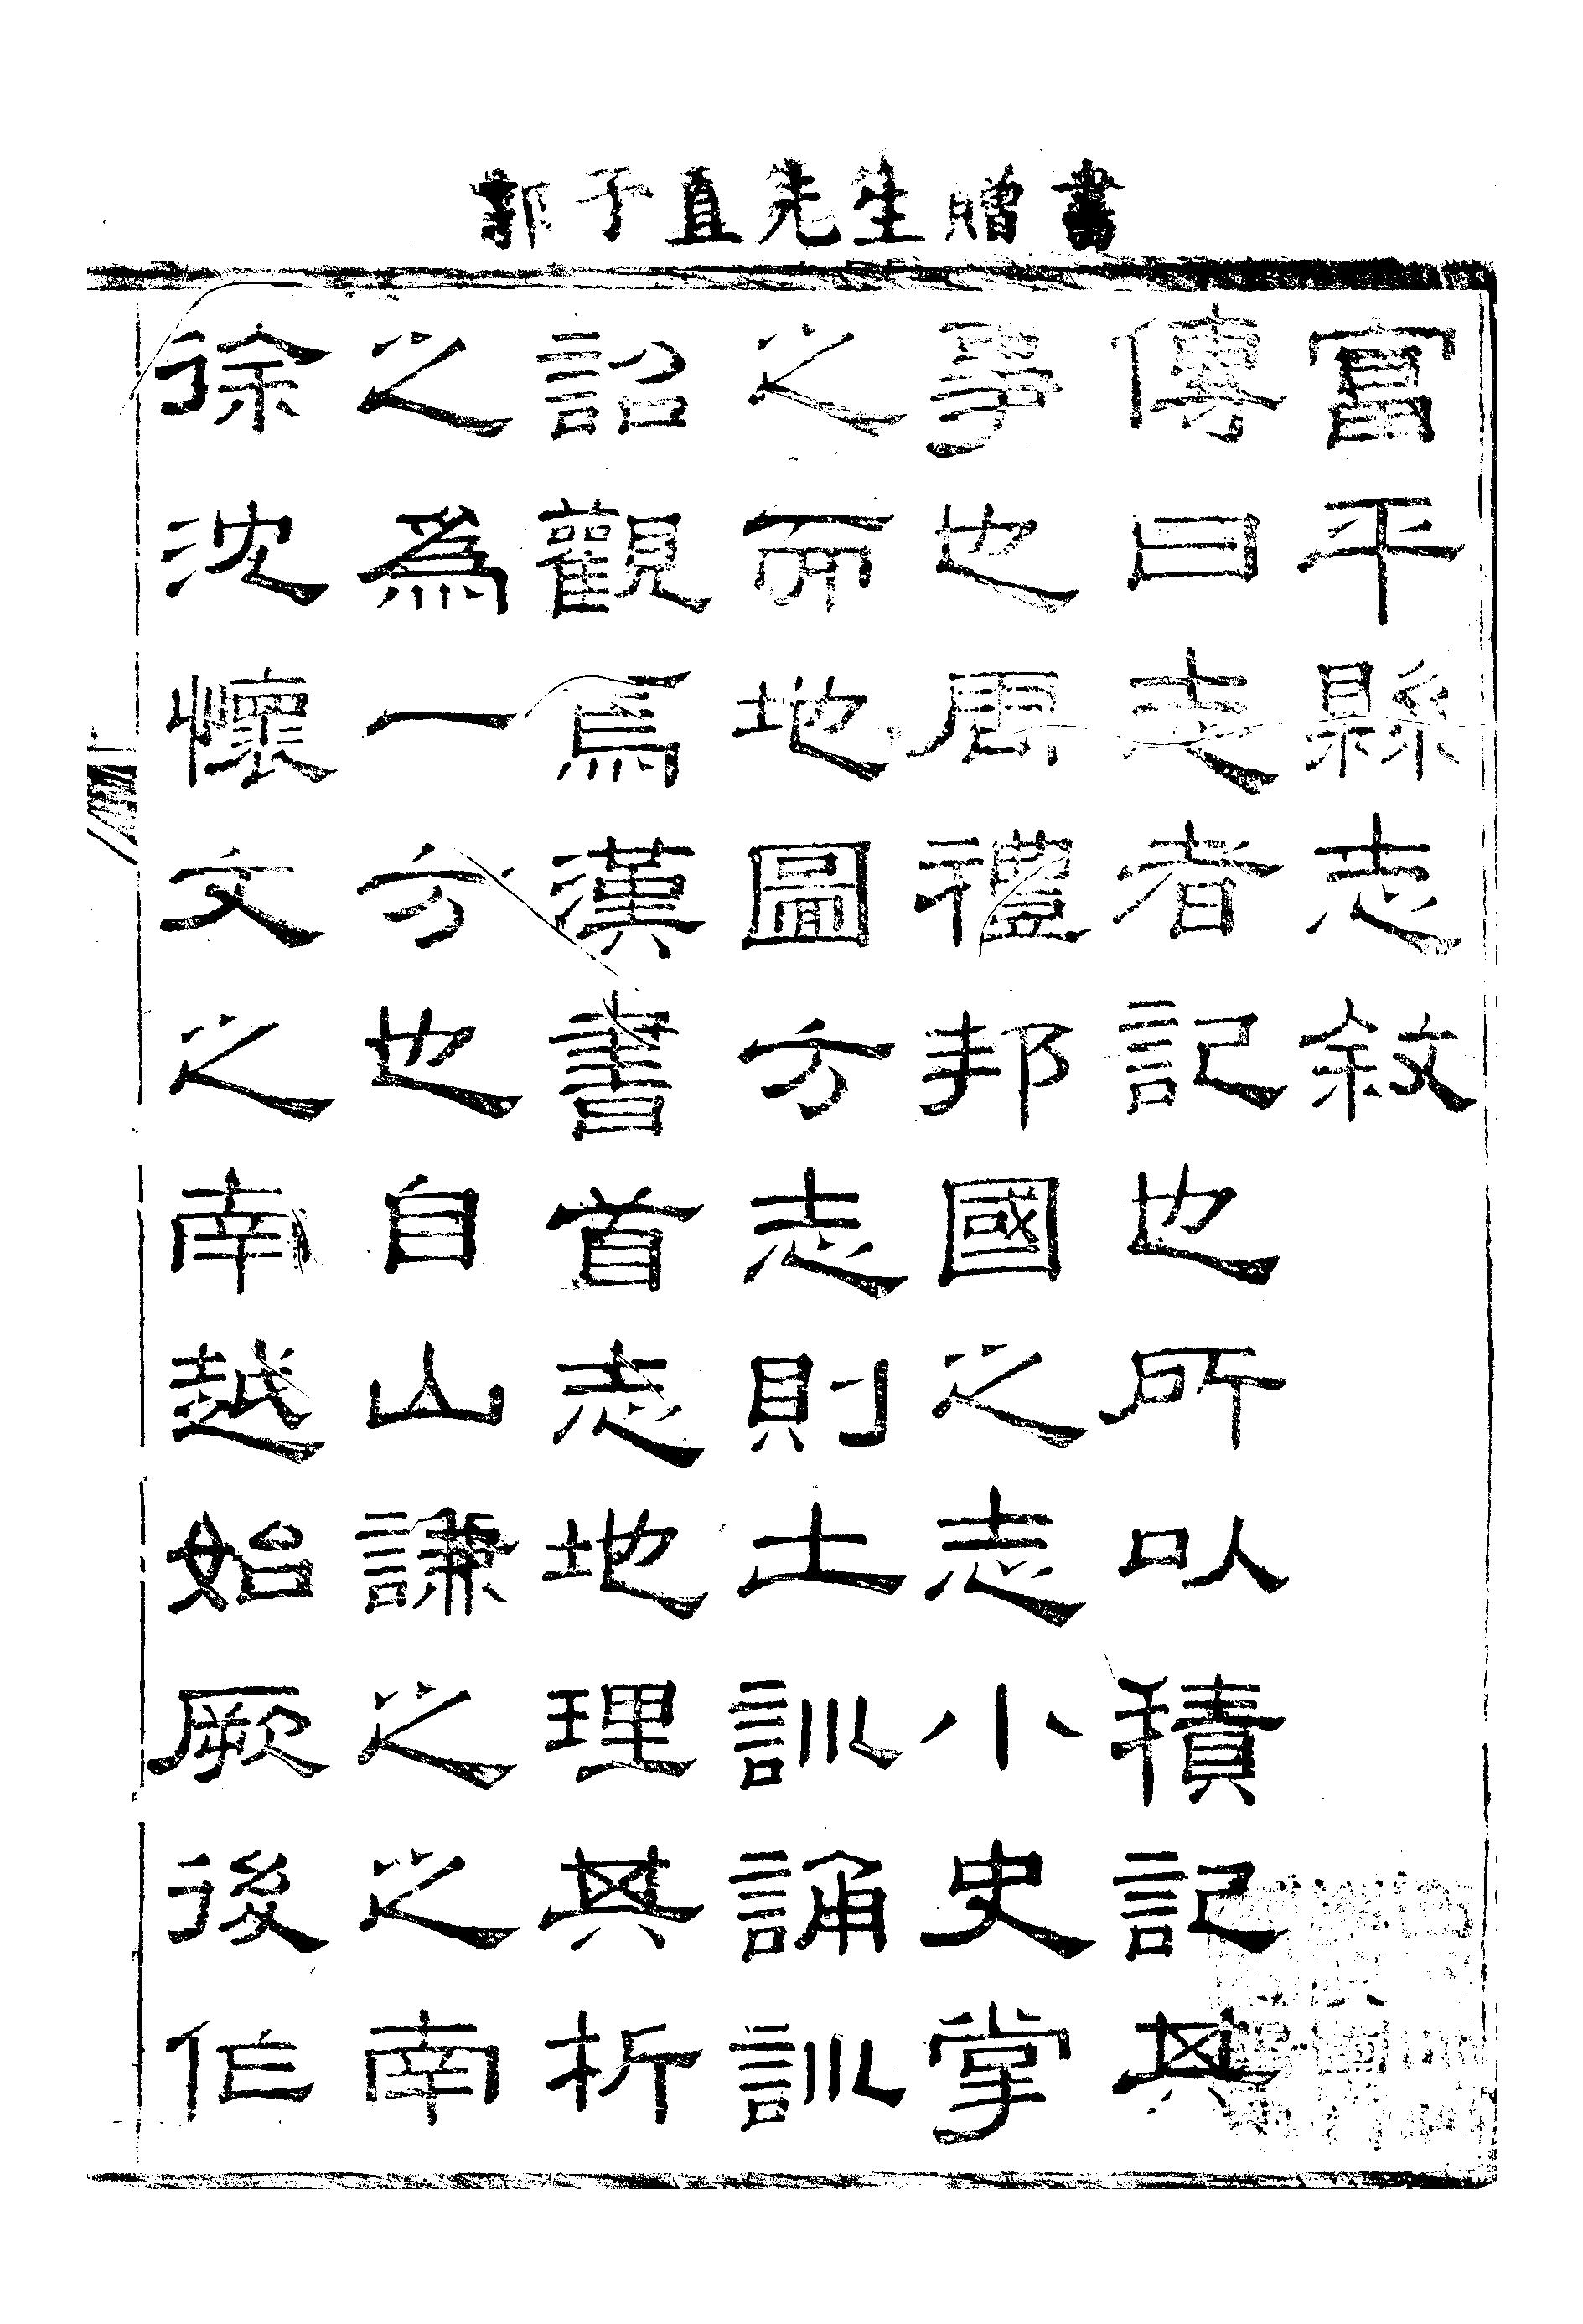 郭子直先生贈書
富平縣志敘
傳曰志者記也所以積記其
事也周禮邦國之志小史掌
之而地圖方志則土訓誦訓
詔觀焉漢書首志地理其析
之為一方也自山謙之之南
徐沈懷文之南越始厥後作